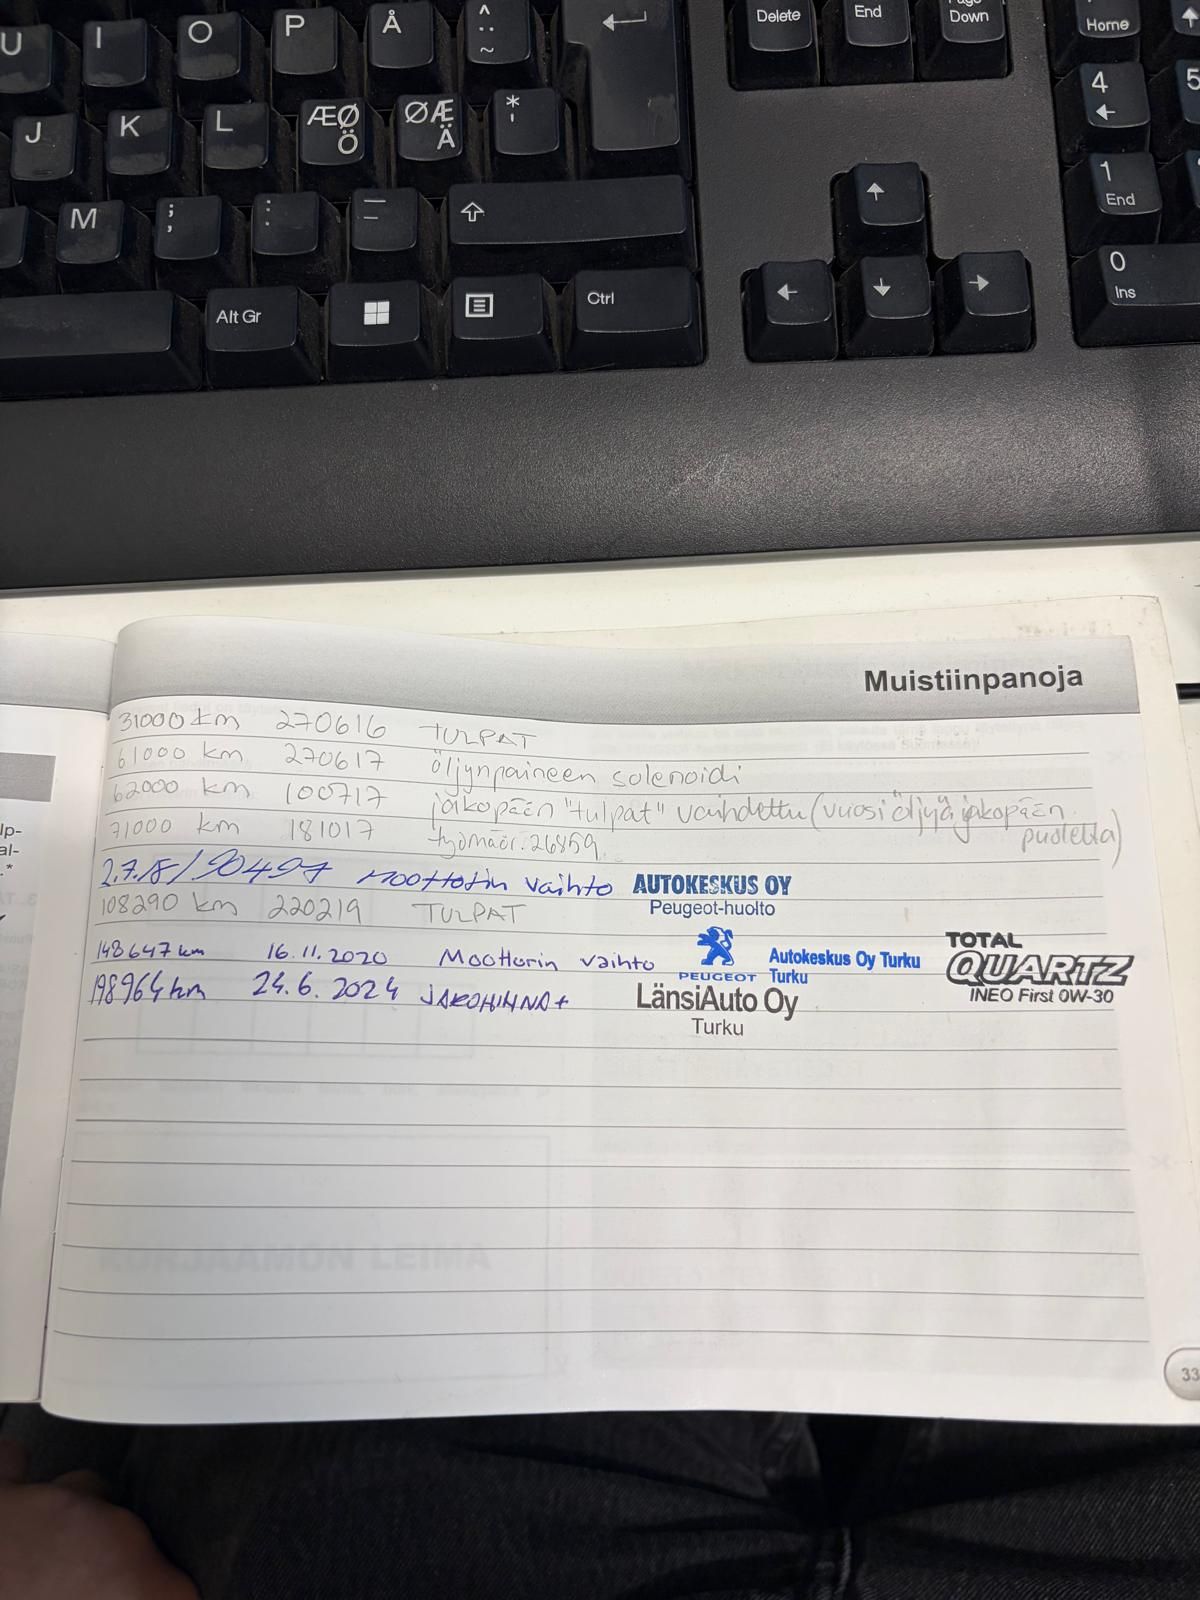 U I O P Å ^ ¨ ~
Delete End Page Down Home
J K L ÆØ Ö ØÆ Ä * '
4 5
M ; : _ —
1 End
Alt Gr Ctrl
0 Ins
Muistiinpanoja
31000 km 270616 TULPAT
61000 km 270617 öljynpaineen solenoidi
62000 km 100717 jakopään "tulpat" vaihdettu (vuosi öljyä jakopään puolelta)
71000 km 181017 työmäär. 26859
2.7.18/90497 Moottorin vaihto AUTOKESKUS OY
Peugeot-huolto
108290 km 220219 TULPAT
148647 km 16.11.2020 Moottorin vaihto
PEUGEOT
Autokeskus Oy Turku
Turku
TOTAL
QUARTZ
INEO First 0W-30
198964 km 24.6.2024 JAKOHIHNA+
LänsiAuto Oy
Turku
KORJAAMON LEIMA
lp-
al-
.*
33